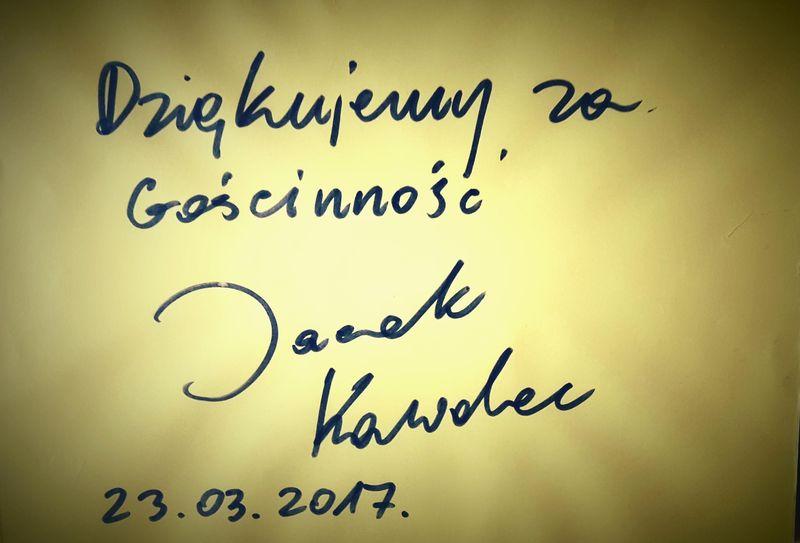 Dziękujemy za
Gościnność
Jacek
Kawalec
23.03.2017.